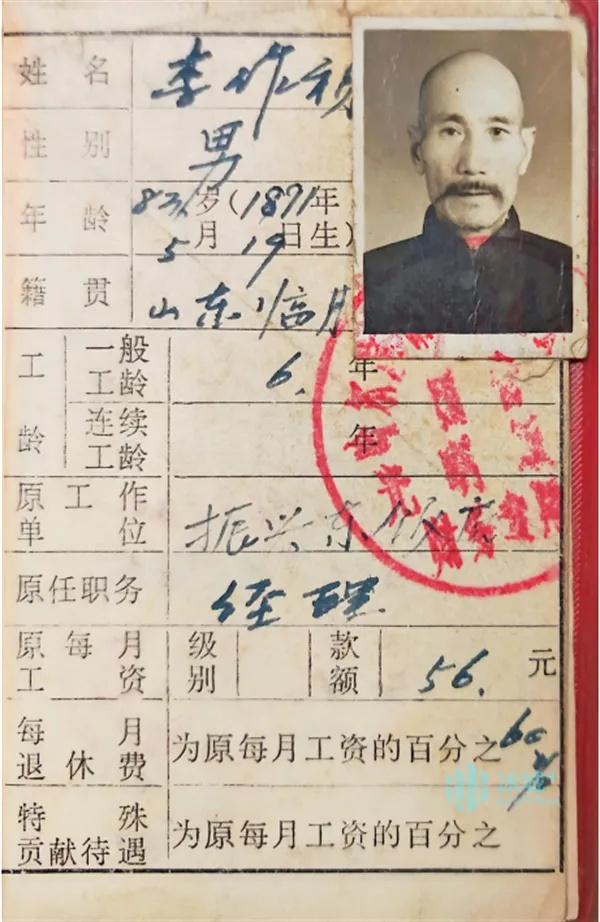 姓名 李作
性别 男
年龄 83岁(1871年
5月19日生)
籍贯 山东临
工龄 一般工龄 6. 年
连续工龄 年
原工作单位 振兴东饭店
原任职务 经理
原每月工资 级别 款额 56. 元
每月退休费 为原每月工资的百分之60
特殊贡献待遇 为原每月工资的百分之